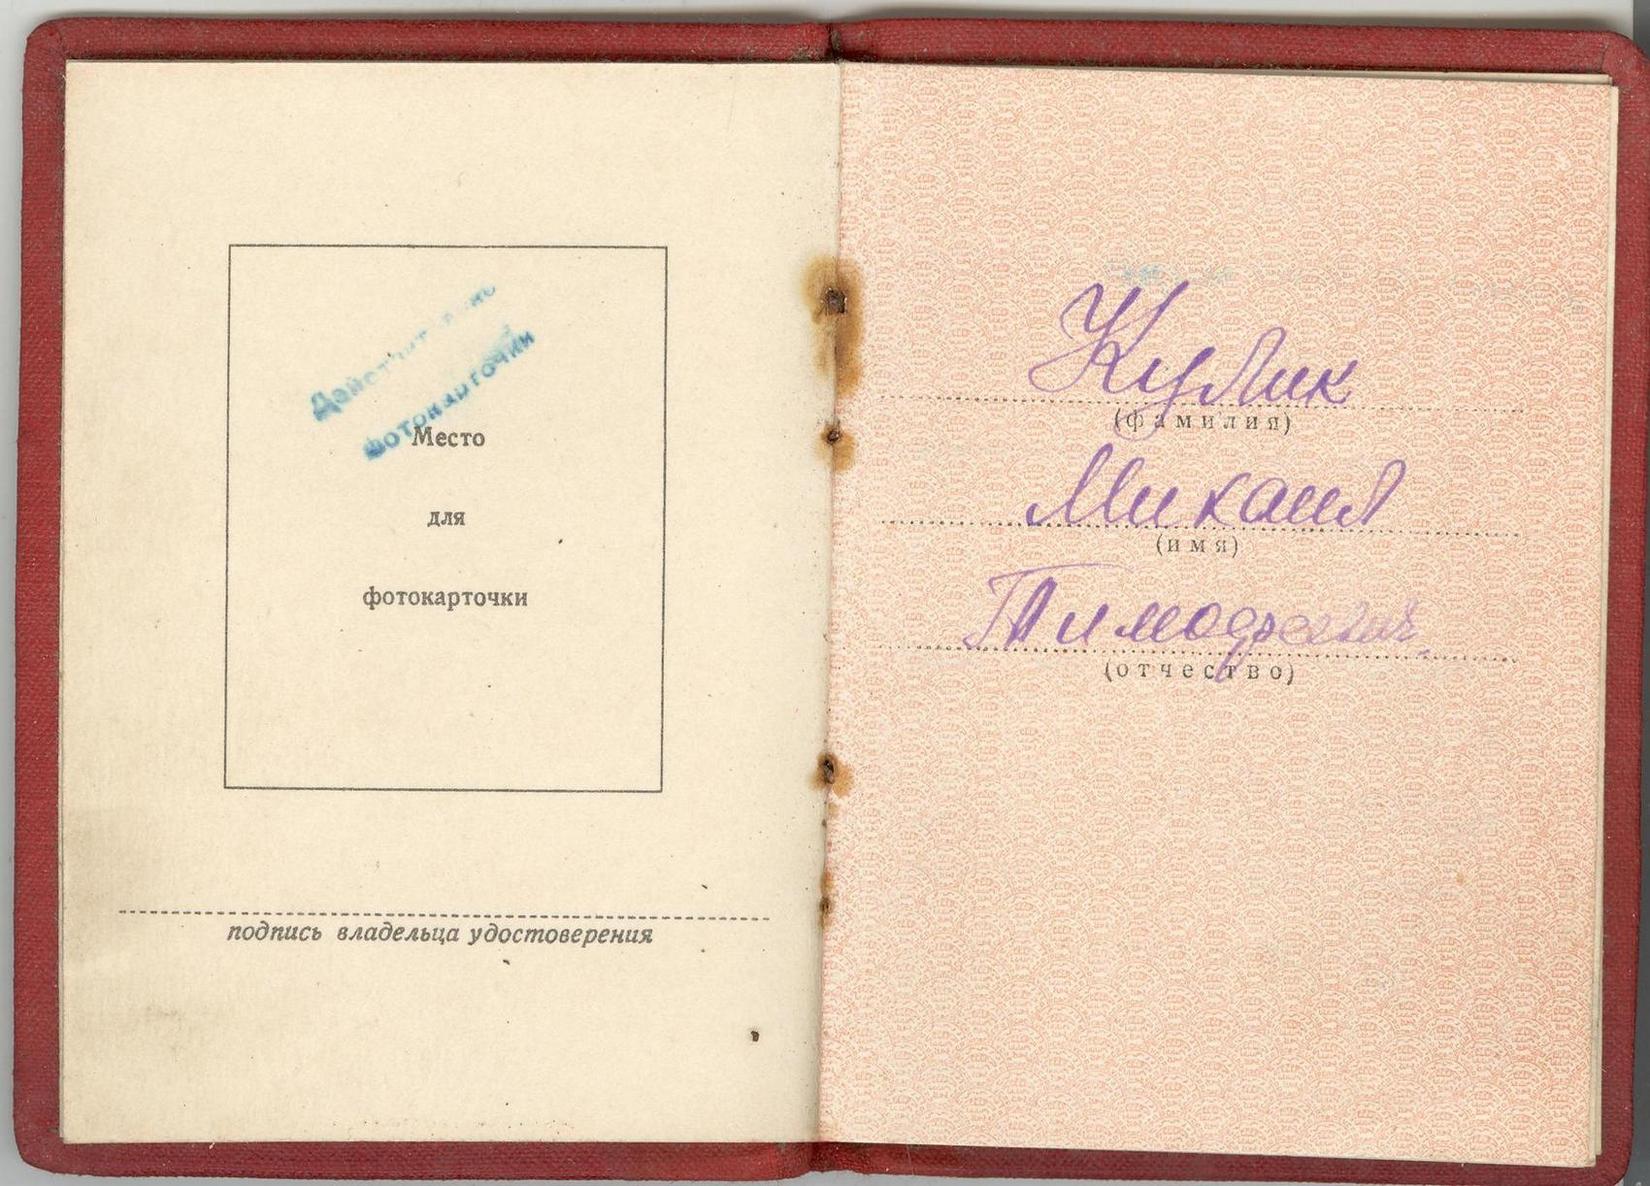 фотокарточки
Место
для
фотокарточки
подпись владельца удостоверения
Кулик
(фамилия)
Михаил
(имя)
Тимофеевич
(отчество)